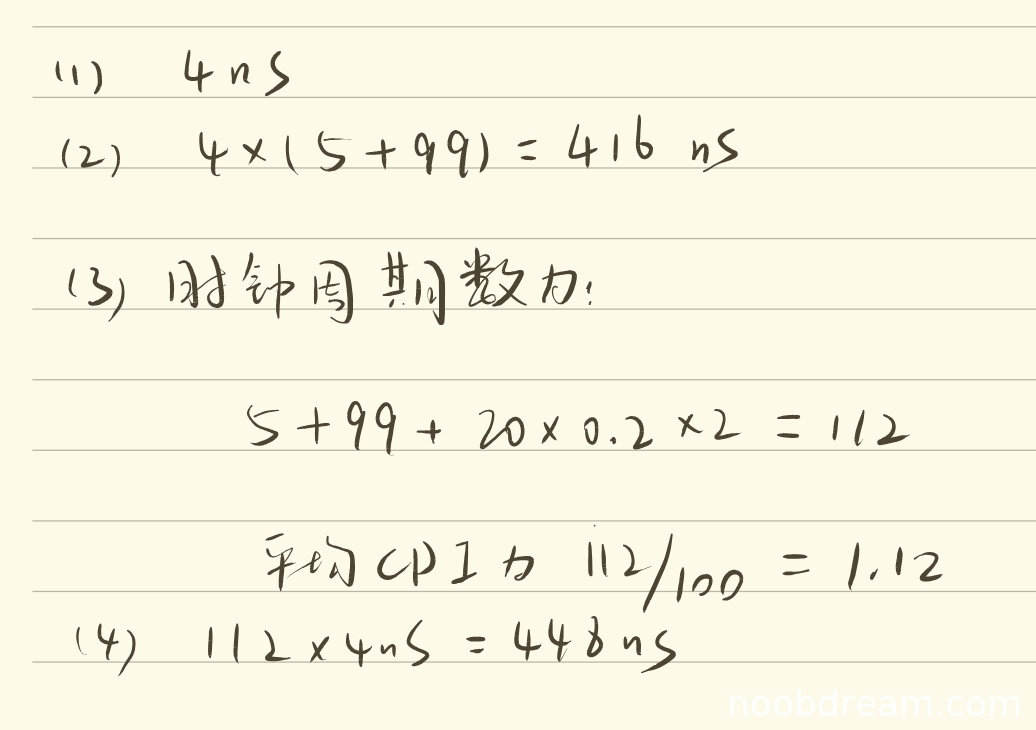 (1) 4ns
(2) 4×(5+99)=416 ns
(3) 时钟周期数为:
5+99+20×0.2×2=112
平均CPI为 112/100=1.12
(4) 112×4ns=448ns
noobdream.com